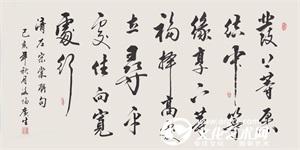 發上等願
結中等
緣享下等
福擇高處
立尋平
處住向寬
處行
清左宗棠聯句
己亥年秋月
文化艺术网